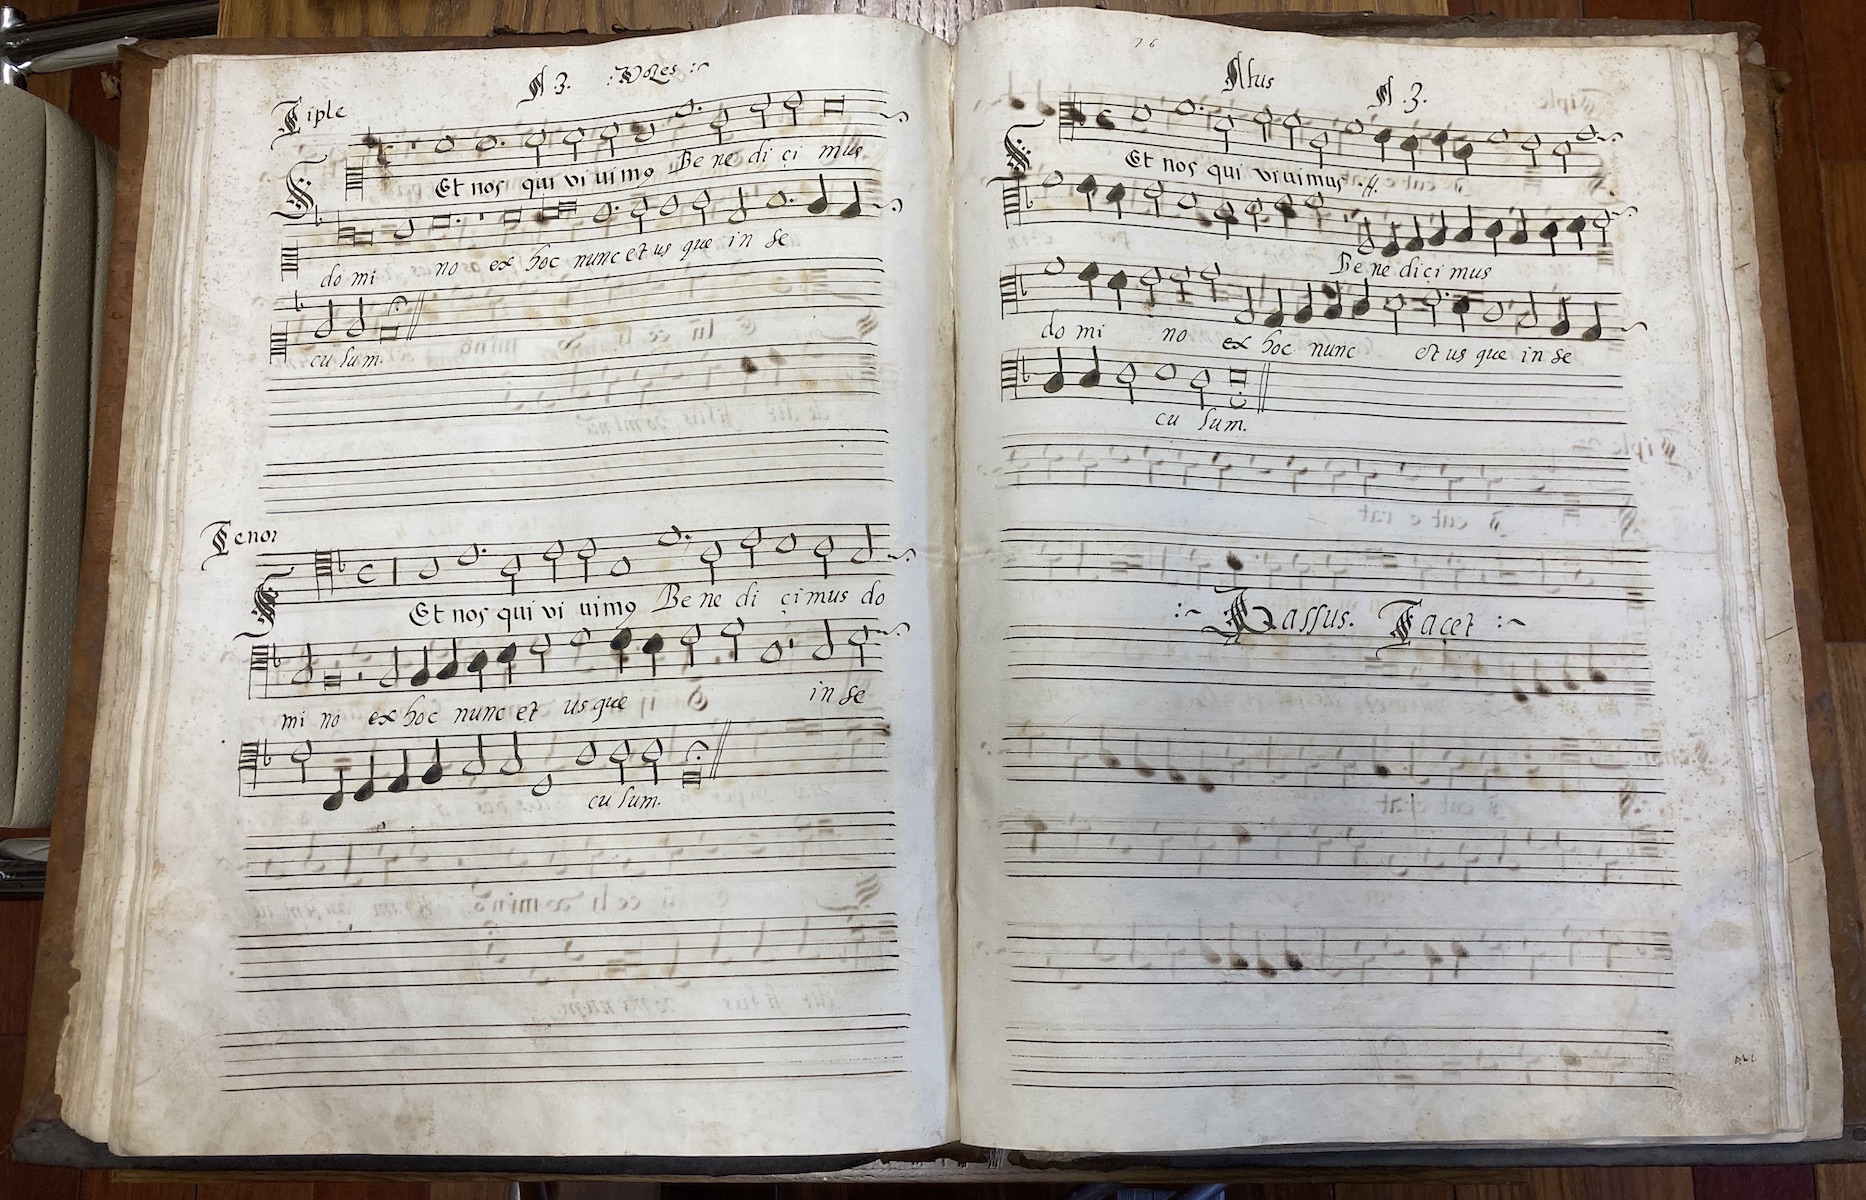 A 3. :Vozes :~
Tiple
Et nos qui vi uimꝰ Be ne di çi mus
do mi no ex hoc nunc et us que in se
cu lum.
Tenor
Et nos qui vi uimꝰ Be ne di çi mus do
mi no ex hoc nunc et us que in se
cu lum.
76
Altus A .3.
Et nos qui viuimus .ij.
Be ne dici mus
do mi no ex hoc nunc et us que in se
cu lum.
:~ Bassus. Taçet :~